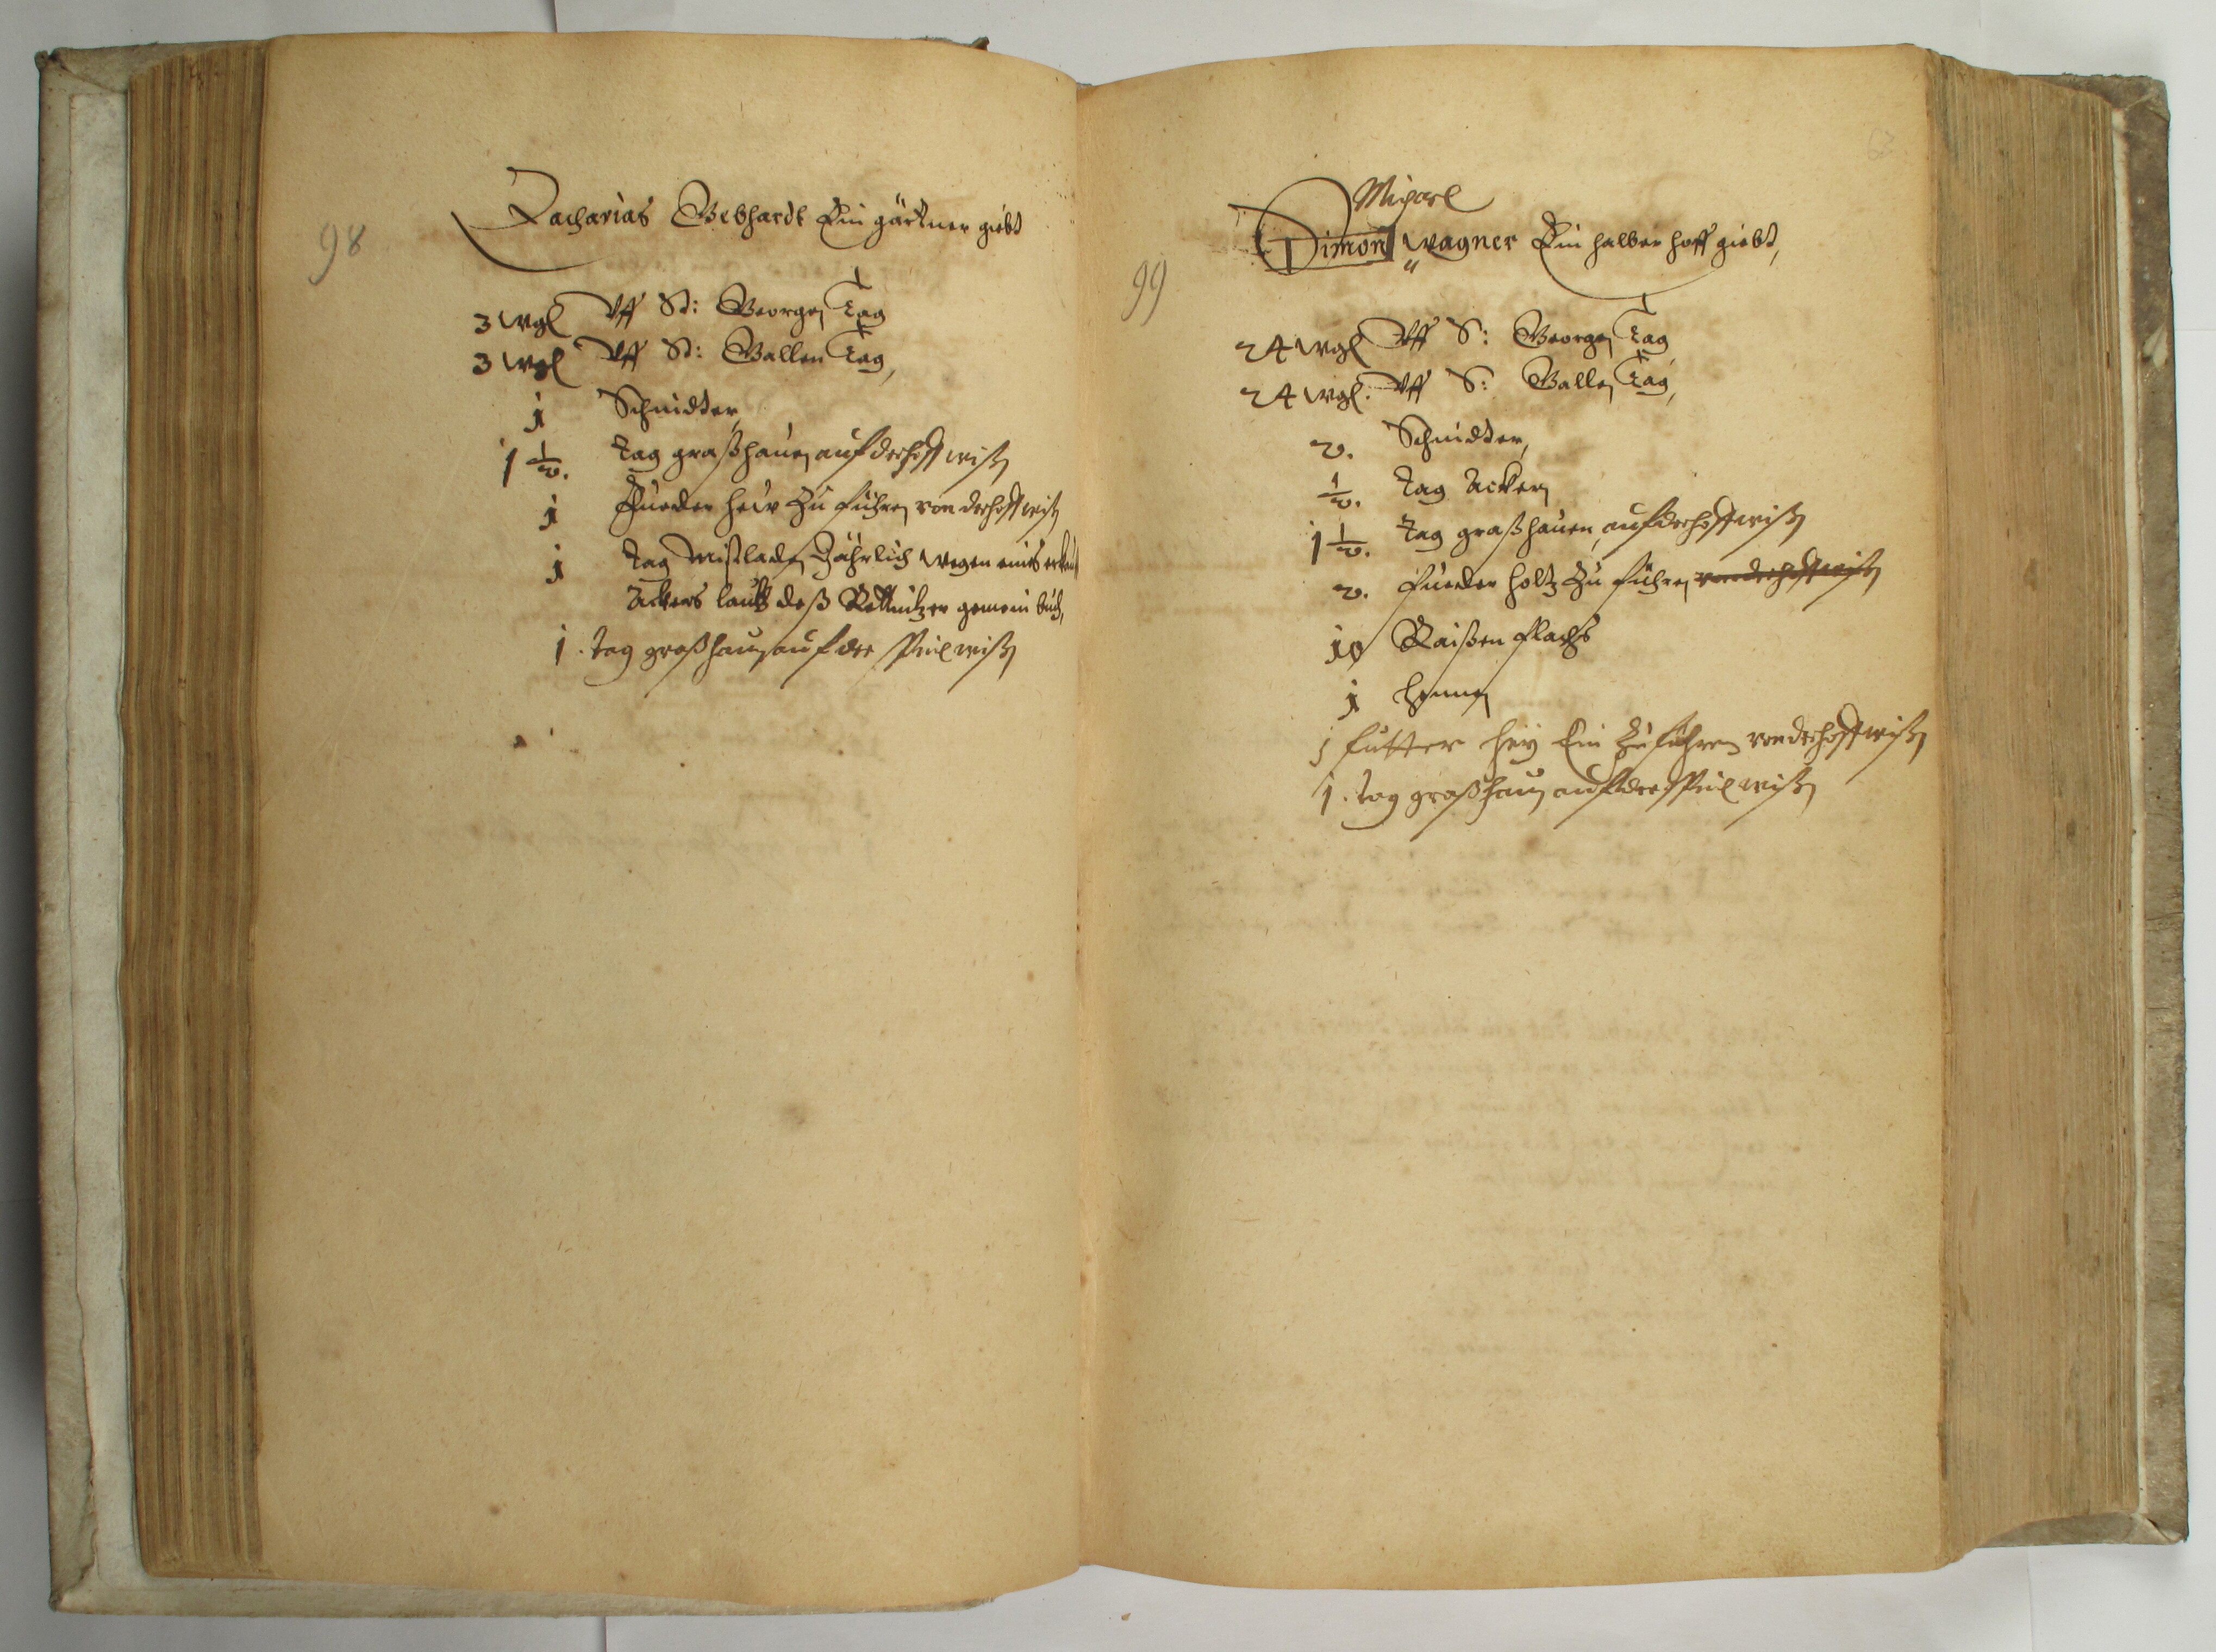 98
Zacharias Gebhardt Ein gärtner giebt
3 wgl Vff St: Georgen Tag
3 wgl Vff St: Gallen Tag,
j Schnidter,
1 1/2. Tag graßhauen auf der hoff wißen
j Fueder hew Zu führen von der hoff wißen
j Tag Mistladen Jährlich wegen eines
Ackers lautt deß gemein buch,
j. tag graßhauen auf der wißen
99
Michael
Simon Wagner Ein halber hoff giebt,
24 wgl Vff S: Georgen Tag
24 wgl. Vff S: Gallen Tag,
2. Schnidter,
1/2. Tag Ackern
1 1/2. Tag graßhauen auf der hoff wißen
2. Fueder holtz Zu führen von der hoff wißen
10 Raißen flachs
j hennen
j futter hey Ein Zu führen von der hoff wißen
1. tag graßhauen auf der wißen